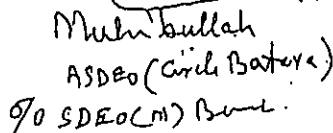 Muhibullah
ASDEO (Circle Battera)
O/O SDEO (M) Bannu.